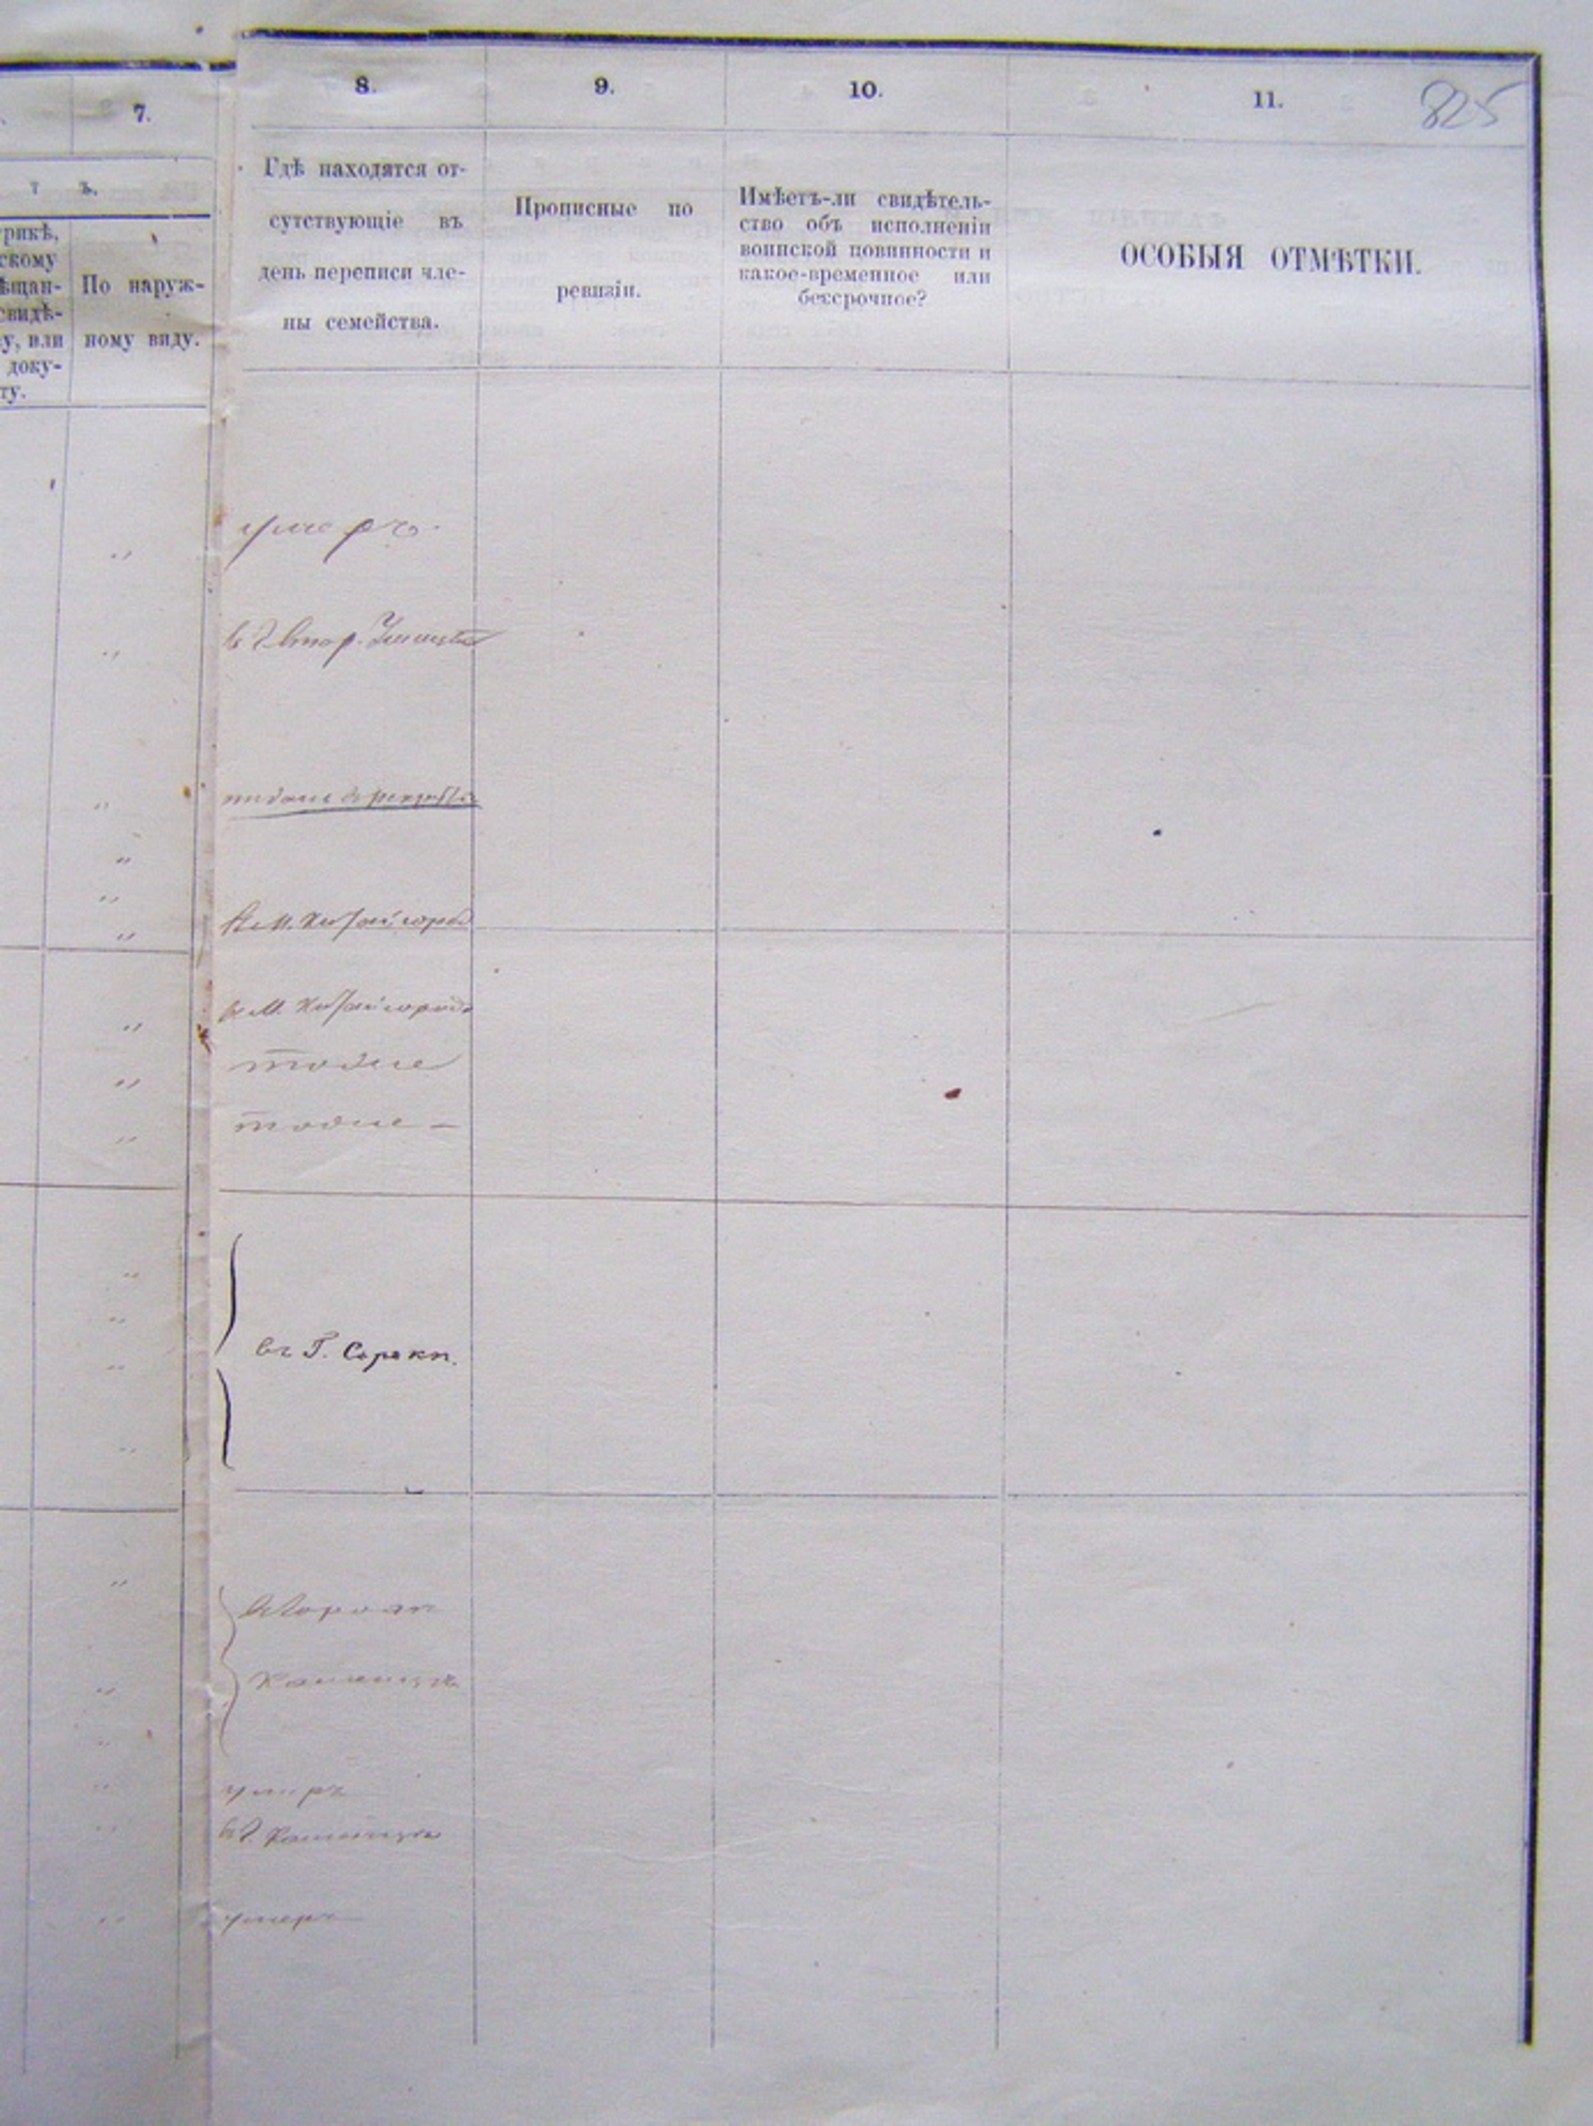 7.
8.
9.
10.
11.
825
т ъ.
рикѣ,
скому
ѣщан-
свидѣ-
у, или
доку-
ту.
По наруж-
ному виду.
Гдѣ находятся от-
сутствующіе въ
день переписи чле-
ны семейства.
Прописные по
ревизіи.
Имѣетъ-ли свидѣтель-
ство объ исполненіи
воинской повинности и
какое-временное или
бессрочное?
ОСОБЫЯ ОТМѢТКИ.
умеръ.
въ М. Китайгородѣ
въ М. Китайгородѣ
тоже
тоже —
въ Г. Сороки.
въ городѣ
Каменцѣ
умеръ
въ г. Каменцѣ
умеръ